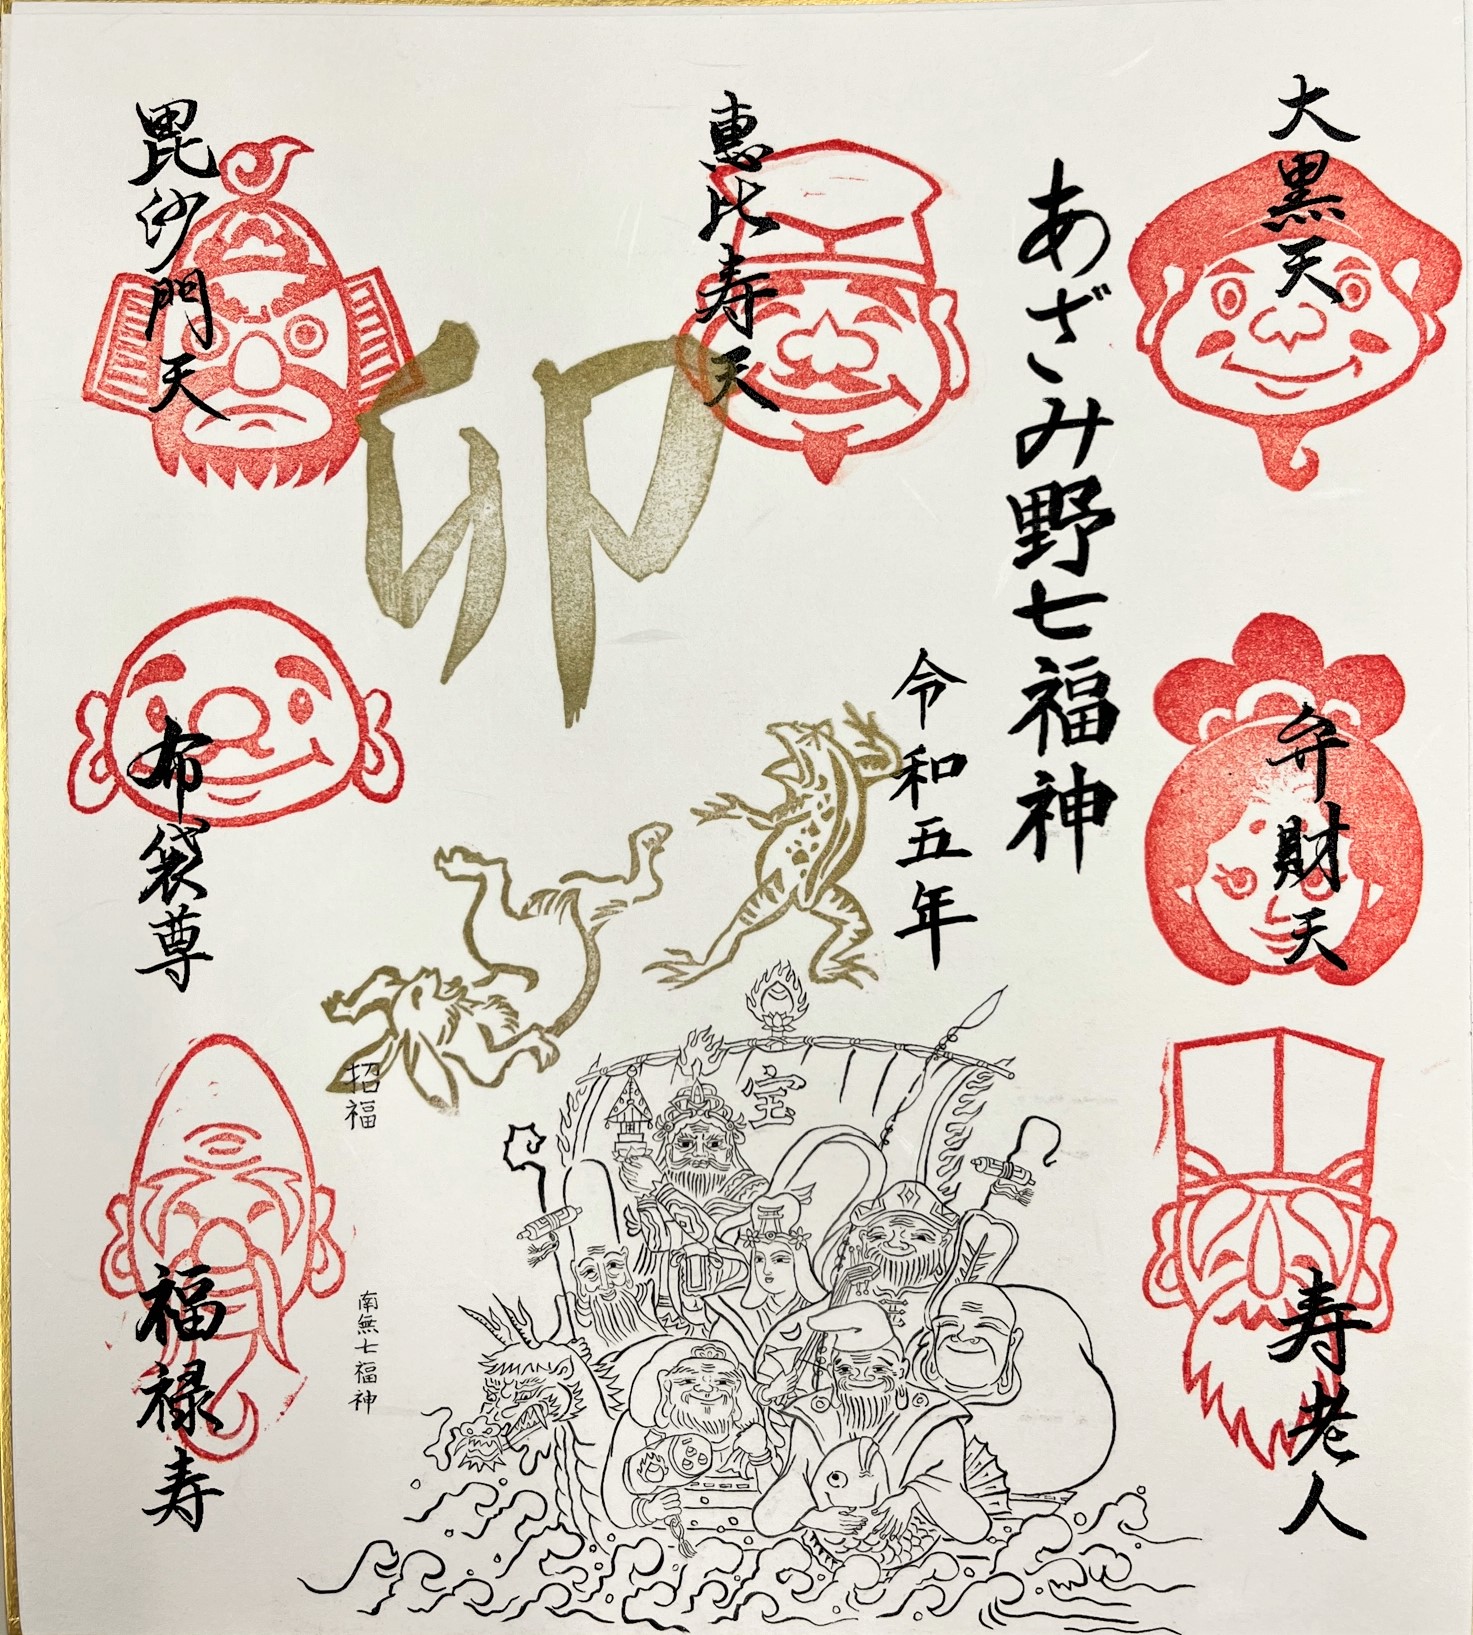 大黒天
弁財天
寿老人
あざみ野七福神
令和五年
恵比寿天
卯
宝
毘沙門天
布袋尊
福禄寿
招福
南無七福神